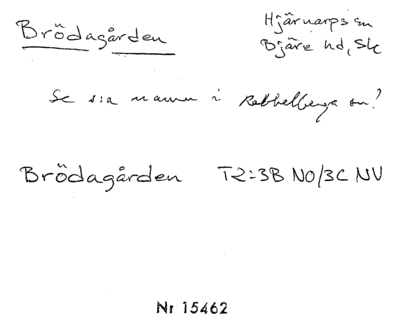 Brödagården
Hjärnarps sn
Bjäre hd, Sk
Se s:a namn i Rebbelberga sn!
Brödagården T2=3B NO/3C NV
Nr 15462